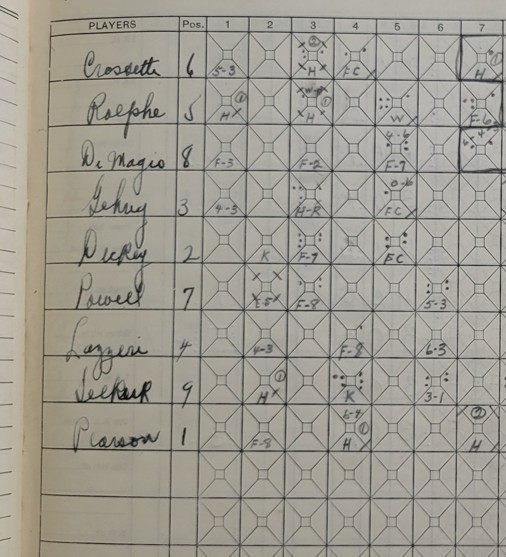 PLAYERS Pos. 1 2 3 4 5 6 7
Crossetti 6 5-3 ② H FC ① H
Rolphe 5 ① H W ① H W F-6
DiMagio 8 F-3 F-2 4-6 F-7
Gehrig 3 4-3 H-R 0-6 FC
Dickey 2 K F-7 FC
Powell 7 E-5 F-8 5-3
Lazzeri 4 4-3 F-8 6-3
Selkirk 9 ① H K 3-1
Pearson 1 F-8 6-4 ① H ② H